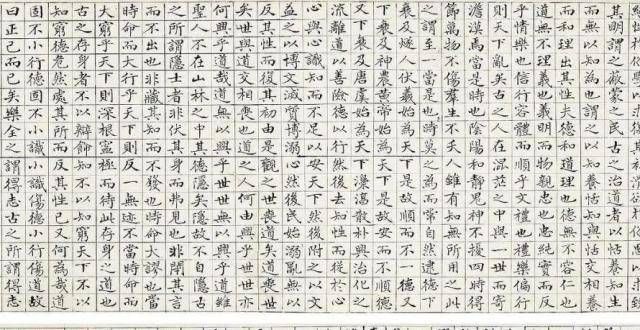 其明謂之蔽蒙之民古之治道者以恬養知生
而無以知為也謂之以知養恬知與恬交相養
而和理出其性夫德和也道理也德無不容仁也
道無不理義也義明而物親忠也中純實而反
乎情樂也信行容體而順乎文禮也禮樂偏行
則天下亂矣古之人在混茫之中與一世而得
澹漠焉當是時也陰陽和靜鬼神不擾四時得
節萬物不傷羣生不夭人雖有知無所用之此
之謂至一當是時也莫之為而常自然逮德下
衰及燧人伏羲始為天下是故順而不一德又
下衰及神農黃帝始為天下是故安而不順德
又下衰及唐虞始為天下澆淳散朴興治化之
流離道以善險德以行然後去性而從於心
心與心識知而不足以定天下然後附之以文
益之以博文滅質博溺心然後民始惑亂無以
反其性情而復其初由是觀之世喪道矣道喪
世矣世與道交相喪也道之人何由興乎世世亦
何由興乎道哉道無以興乎世世無以興乎道雖
聖人不在山林之中其德隱矣隱故不自隱古
之所謂隱士者非伏其身而弗見也非閉其言
而不出也非藏其知而不發也時命大謬也當
時命而大行乎天下則反一無迹不當時命而
大窮乎天下則深根寧極而待此存身之道也
古之存身者不以辯飾知不以知窮天下不以
知窮德危然處其所而反其性已又何為哉道
固不小行德固不小識小識傷德小行傷道故
曰正己而已矣樂全之謂得志古之所謂得志